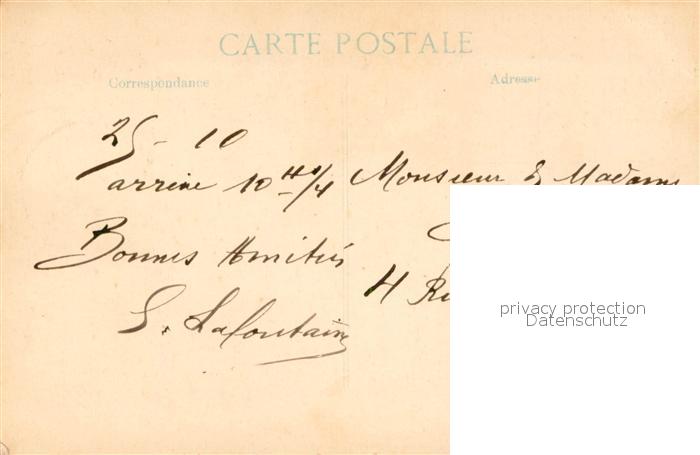 CARTE POSTALE
Correspondance
Adresse
25 - 10
arrive 10 H 1/4
Bonnes Amitiés
E. Lafontaine
Monsieur & Madame
4 Ru
privacy protection
Datenschutz